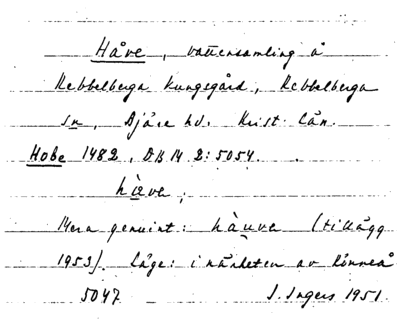 Håve, vattensamling å
Rebbelberga Kungsgård, Rebbelberga
sn, Bjäre hd. Krist. län.
Hobe 1482, DB 14 2:5054.
hàva;
Mera genuint: hàuva (tillägg
1953). Läge: i närheten av Rönneå
5047 I. Ingers 1951.